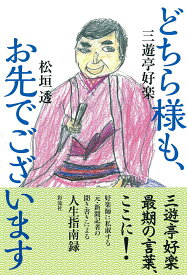 どちら様も、
お先でございます
三遊亭好楽
松垣透
三遊亭好楽
最期の言葉、
ここに!
好楽師に私淑する
元・新聞記者が
聞き書きによる
人生指南録
彩流社